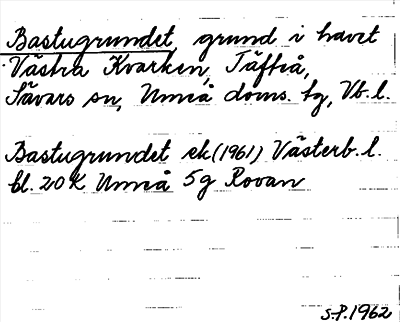 Bastugrundet, grund i havet
Västra Kvarken, Täfteå,
Sävars sn, Umeå doms. tg, Vb.l.
Bastugrundet ek(1961) Västerb.l.
bl. 20K Umeå 5g Rovan
S.P.1962